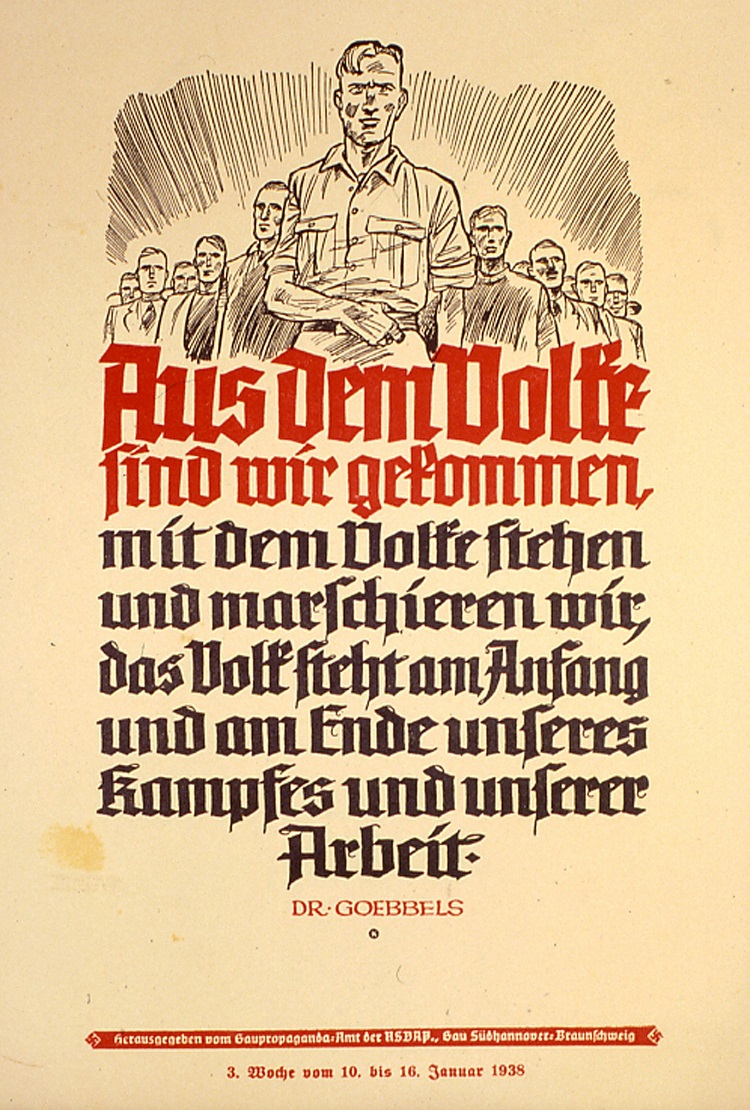 Aus dem Volke
sind wir gekommen,
mit dem Volke stehen
und marschieren wir,
das Volk steht am Anfang
und am Ende unseres
Kampfes und unserer
Arbeit.
DR. GOEBBELS
Herausgegeben vom Gaupropaganda-Amt der NSDAP., Gau Südhannover-Braunschweig
3. Woche vom 10. bis 16. Januar 1938